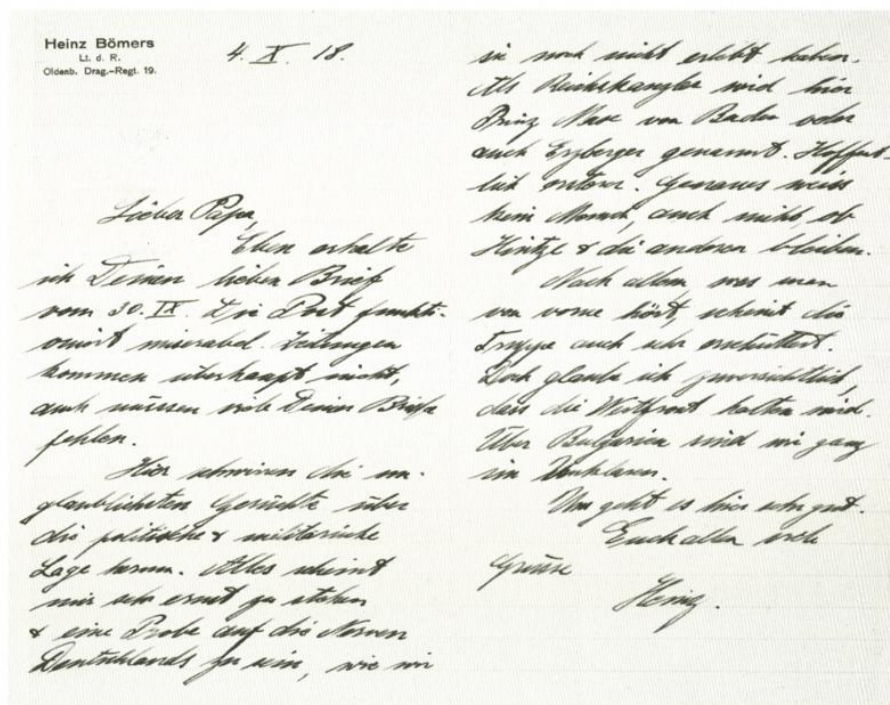 Heinz Bömers
Lt. d. R.
Oldenb. Drag.-Regt. 19.
4. X. 18.
Lieber Papa,
Eben erhalte
ich Deinen lieben Brief
vom 30. IX. Die Post funkti-
oniert miserabel. Zeitungen
kommen überhaupt nicht,
auch müssen viele Deiner Briefe
fehlen.
Hier schwirren die un-
glaublichsten Gerüchte über
die politische & militärische
Lage herum. Alles scheint
mir sehr ernst zu stehen
& eine Probe auf die Nerven
Deutschlands zu sein, wie wir
sie noch nicht erlebt haben.
Als Reichskanzler wird hier
Prinz Max von Baden oder
auch Erzberger genannt. Hoffent-
lich ersterer. Genaues weiss
kein Mensch, auch nicht, ob
Hintze & die anderen bleiben.
Nach allem, was man
von vorne hört, scheint die
Truppe auch sehr erschüttert.
Doch glaube ich zuversichtlich,
dass die Westfront halten wird.
Über Bulgarien sind wir ganz
im Unklaren.
Uns geht es hier sehr gut.
Euch allen viele
Grüsse
Heinz.